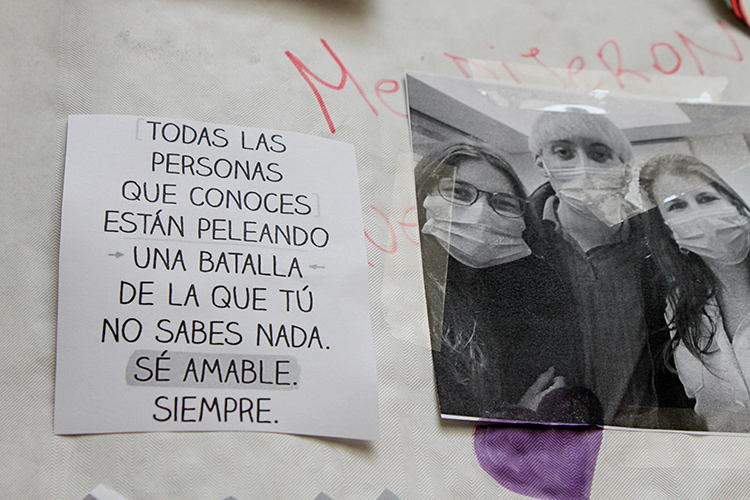 Me DIJERON
TODAS LAS
PERSONAS
QUE CONOCES
ESTÁN PELEANDO
UNA BATALLA
DE LA QUE TÚ
NO SABES NADA.
SÉ AMABLE.
SIEMPRE.